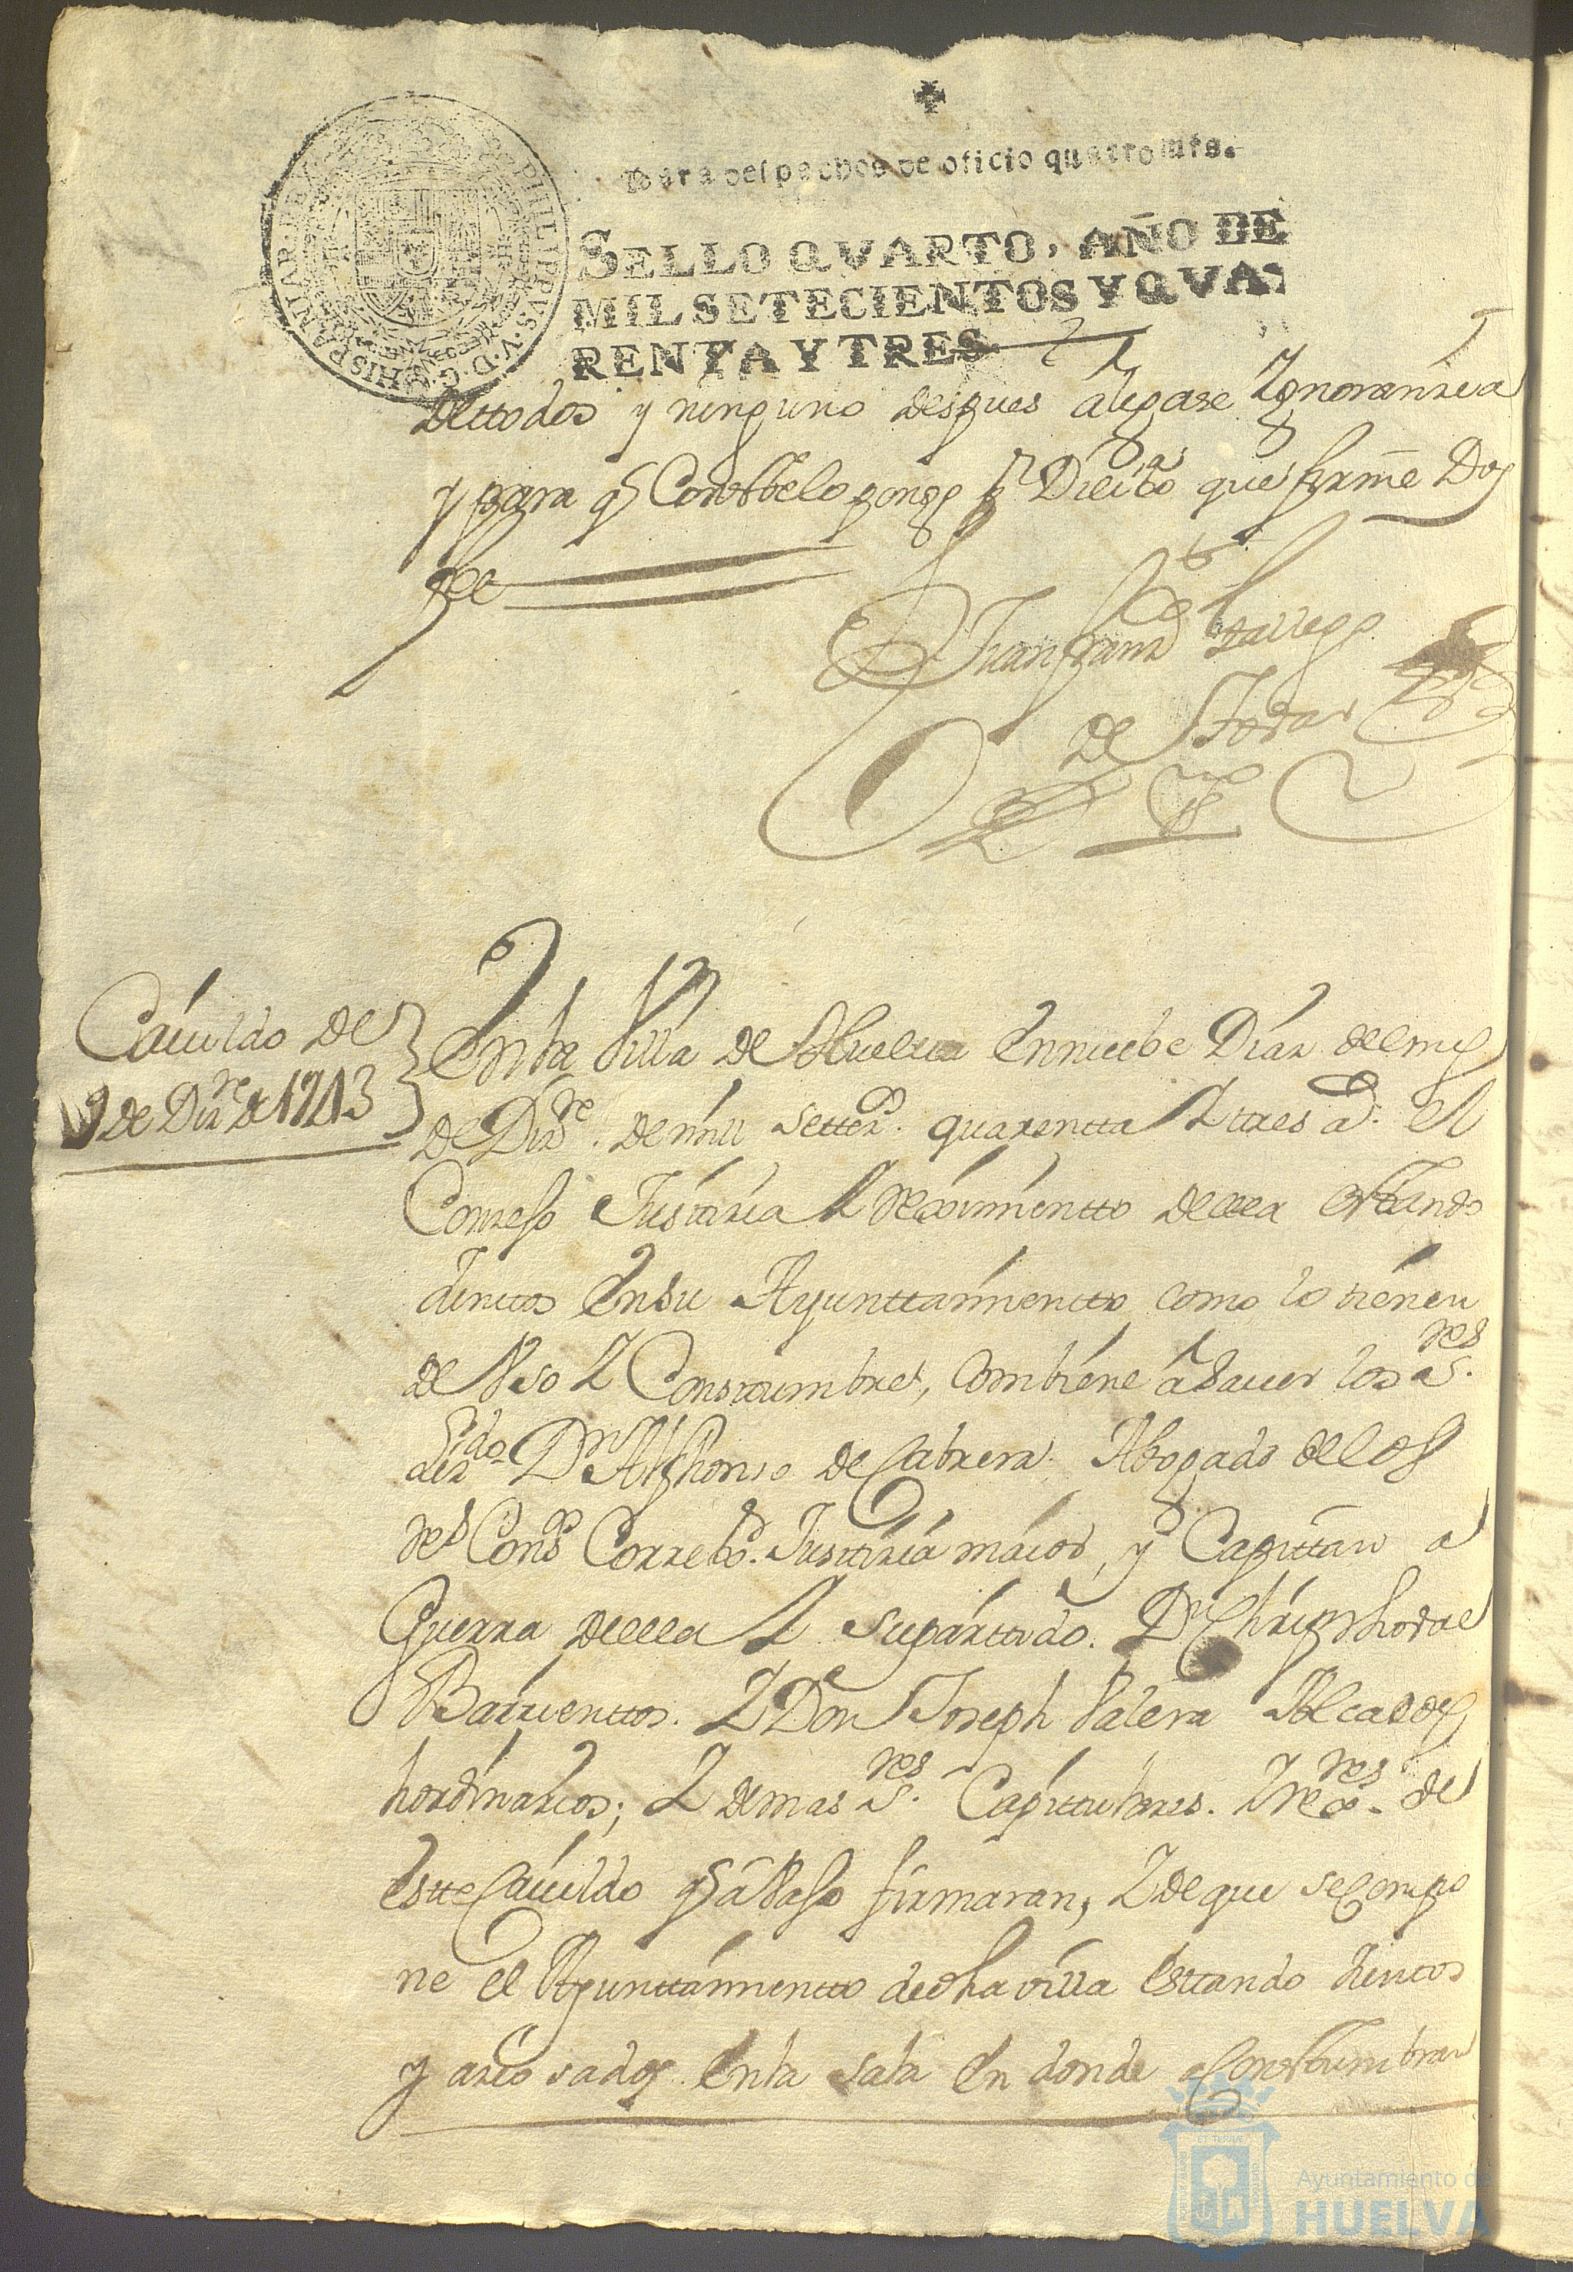 Para despachos de oficio quatro mrs.
SELLO QVARTO, AÑO DE
MIL SETECIENTOS Y QVA-
RENTA Y TRES
PHILIPPVS V D G HISPANIAR
dettodos y ninguno despues alegase Ygnoranzia
y para q Constte lo pongo pr Dilixa que firme Doy
fee
Juan Gallego
de Tovar
Cauildo de
9 de Dizre de 1743
En la Villa de Huelua En nuebe Dias del mes
de Dizre. de mill settezs. quarentta Y tres as. el
Conzejo Justizia Y Reximientto de ella esttando
Junttos En su Ayunttamientto como lo tienen
de Vso Y Consttumbre, Combiene a Sauer los Sres.
Lizdo. Dn Alphonso de Cabrera Abogado de los
Rs Consos Corregor. Justizia maior, y Capittan a
Guerra de ella Y su parttido. Dn Christhoval
Barrienttos. Y Don Joseph Valera Alcaldes
hordinarios; Y demas Sres. Capitulares. Y Rexres. de
estte Cauildo q a Vajo firmaran, Y de que se Compo
ne el Ayunttamientto de dha villa esttando Junttos
y Congregados En la sala En donde aConsttumbran
Ayuntamiento de
HUELVA